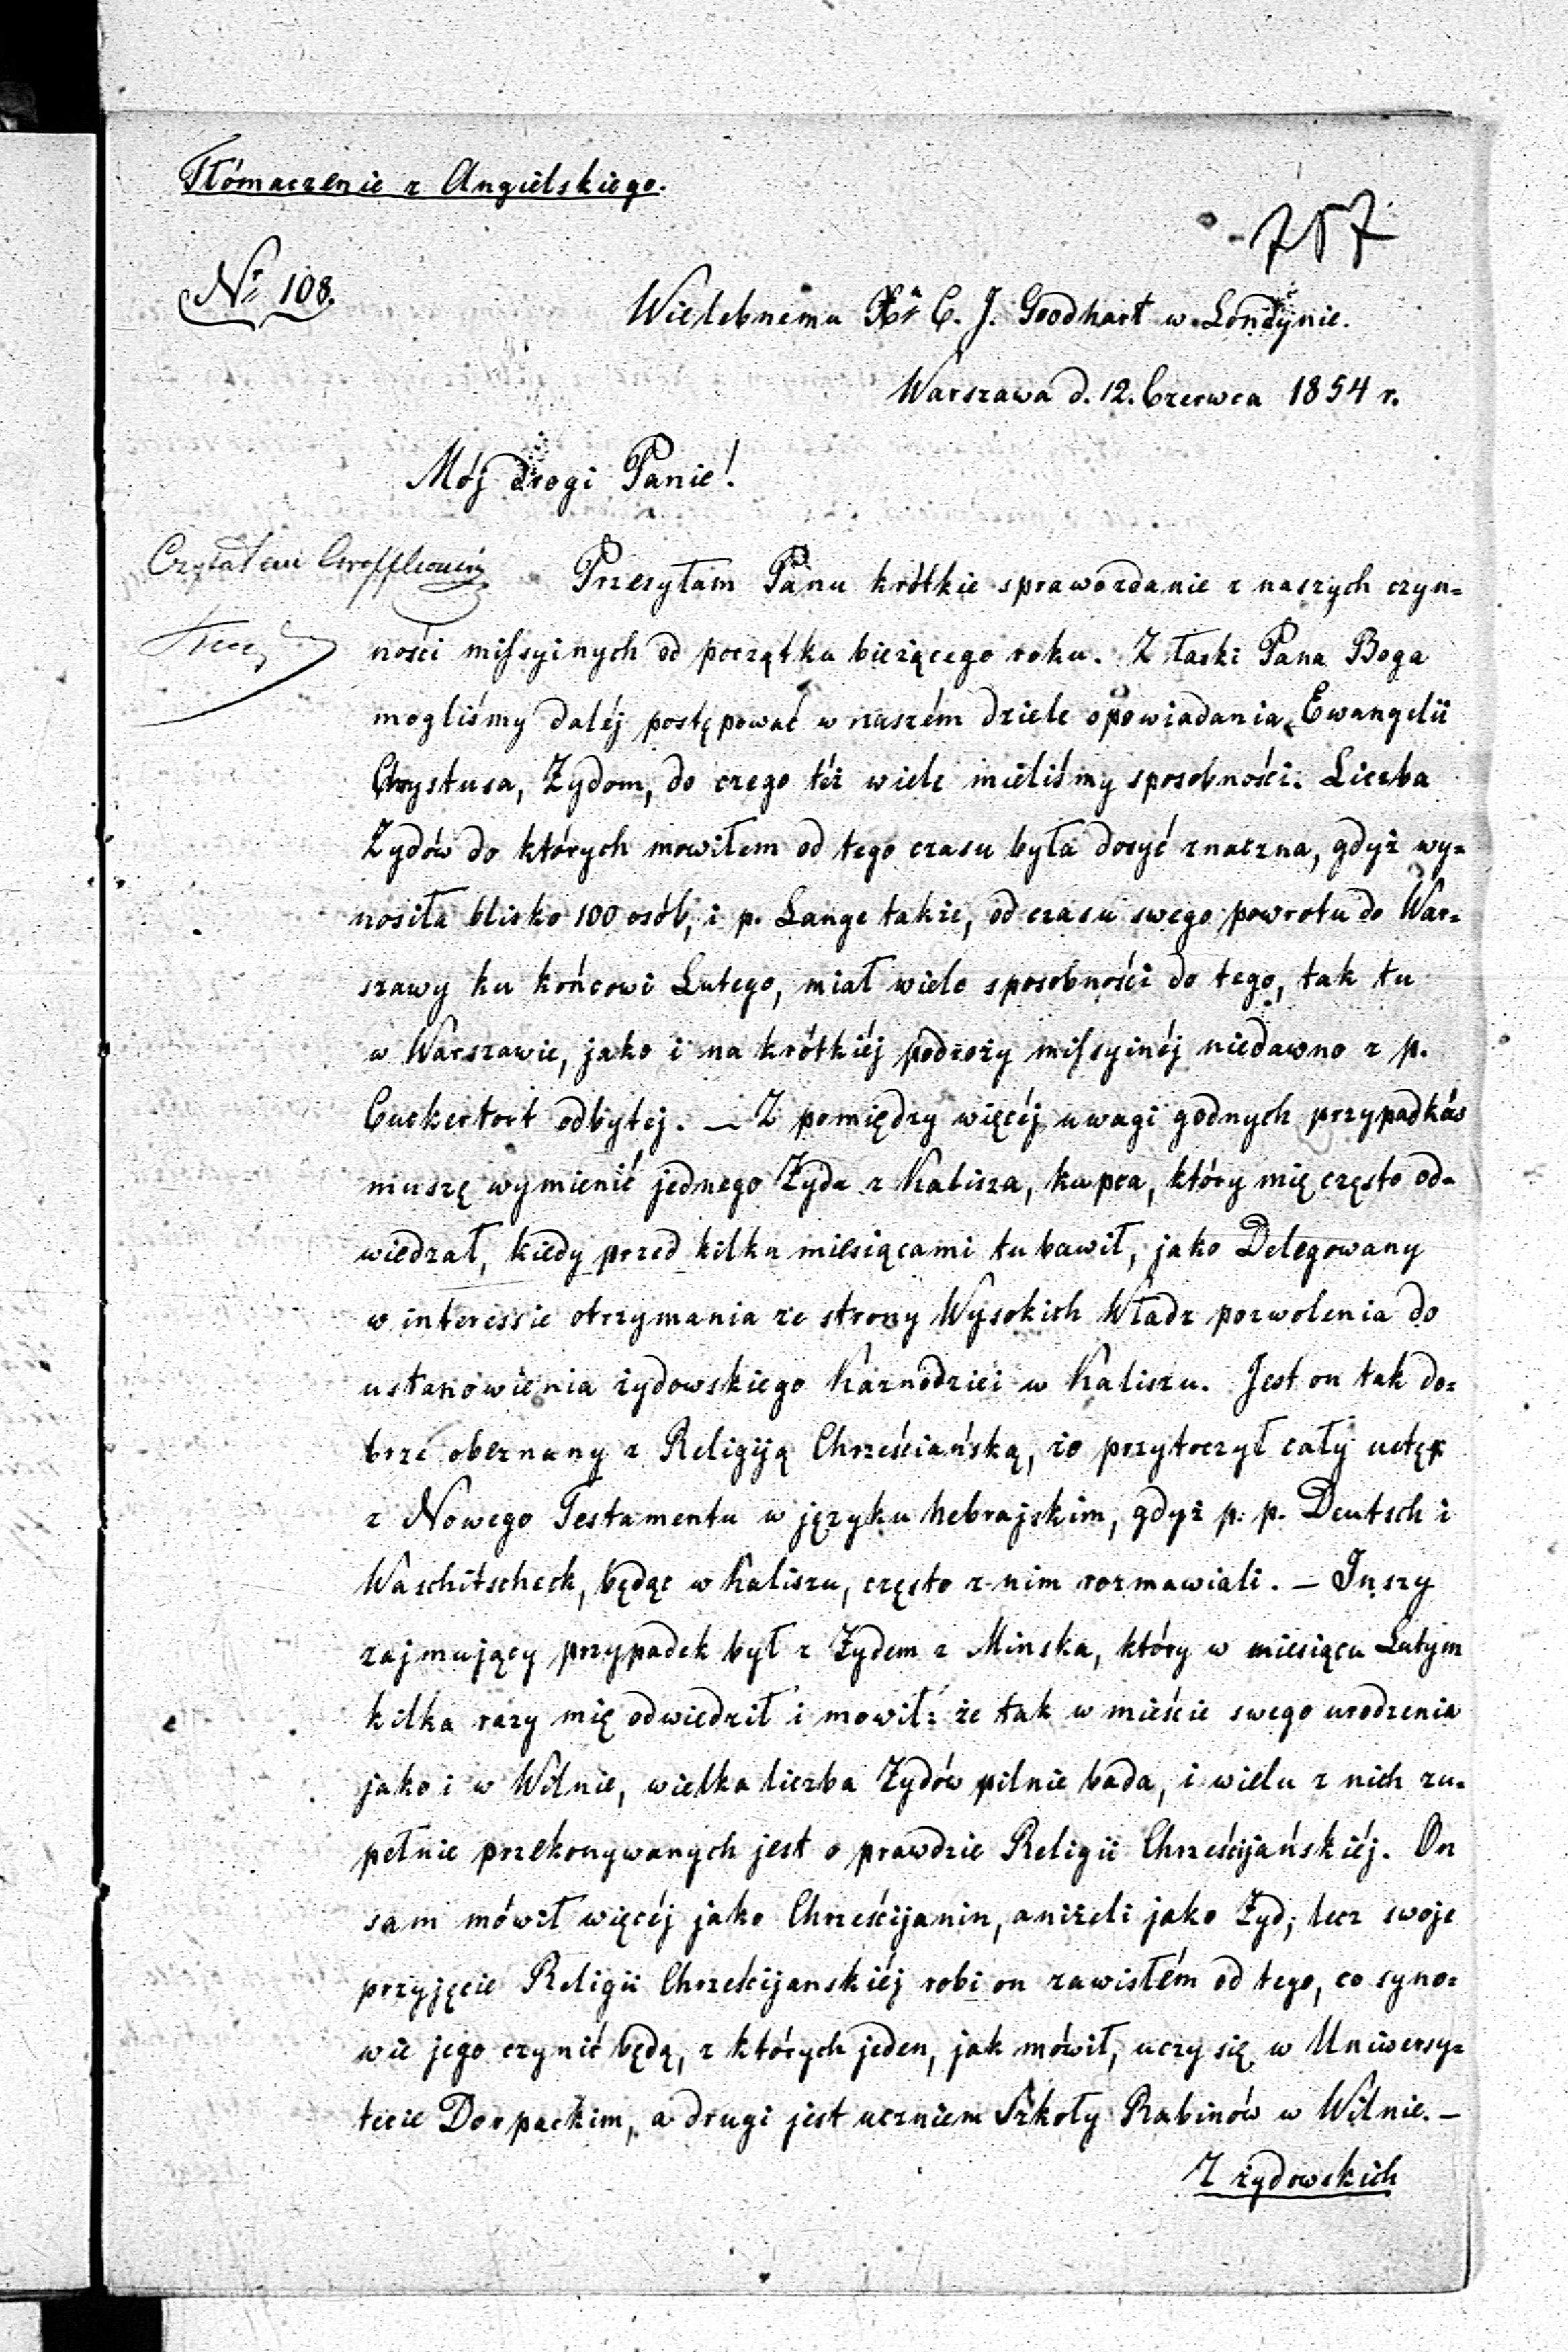 Tłómaczenie z Angielskiego.
757
Nr 108.
Wielebnemu Xu C. J. Goodhart w Londynie.
Warszawa d. 12. Czerwca 1854 r.
Mój drogi Panie!
Czytałem
Przesyłam Panu krótkie sprawozdanie z naszych czyn=
ności missyinych od początku bieżącego roku. Z łaski Pana Boga
mogliśmy daléj postępować w naszém dziele opowiadania Ewangelii
Chrystusa, Żydom, do czego téż wiele mieliśmy sposobności. Liczba
Żydów do których mowiłem od tego czasu była dosyć znaczna, gdyż wy=
nosiła blisko 100 osób, i p. Lange także, od czasu swego powrotu do War=
szawy ku końcowi Lutego, miał wiele sposobności do tego, tak tu
w Warszawie, jako i na krótkiéj podroży missyinéj niedawno z p.
Cuckertort odbytej. — Z pomiędzy więcéj uwagi godnych przypadków
muszę wymienić jednego Żyda z Kalisza, kupca, który mię często od=
wiedzał, kiedy przed kilku miesiącami tu bawił, jako Delegowany
w interessie otrzymania ze strony Wysokich Władz pozwolenia do
ustanowienia żydowskiego Kaznodziei w Kaliszu. Jest on tak do=
brze obeznany z Religiją Chrześciańską, że przytoczył cały ustęp
z Nowego Testamentu w języku hebrajskim, gdyż p. p. Deutsch i
Waschitscheck, będąc w Kaliszu, często z nim rozmawiali. — Inszy
zajmujący przypadek był z Żydem z Minska, który w miesiącu Lutym
kilka razy mię odwiedził i mowił: że tak w mieście swego urodzenia
jako i w Wilnie, wielka liczba Żydów pilnie bada, i wielu z nich zu=
pełnie przekonywanych jest o prawdzie Religii Chrześcijańskiéj. On
sam mówił więcéj jako Chrześcijanin, aniżeli jako Żyd; lecz swoje
przyjęcie Religii Chrześcijanskiéj robi on zawisłém od tego, co syno=
wie jego czynić będą, z których jeden, jak mówił, uczy się w Uniwersy=
tecie Dorpackim, a drugi jest uczniem Szkoły Rabinów w Wilnie. —
Z żydowskich